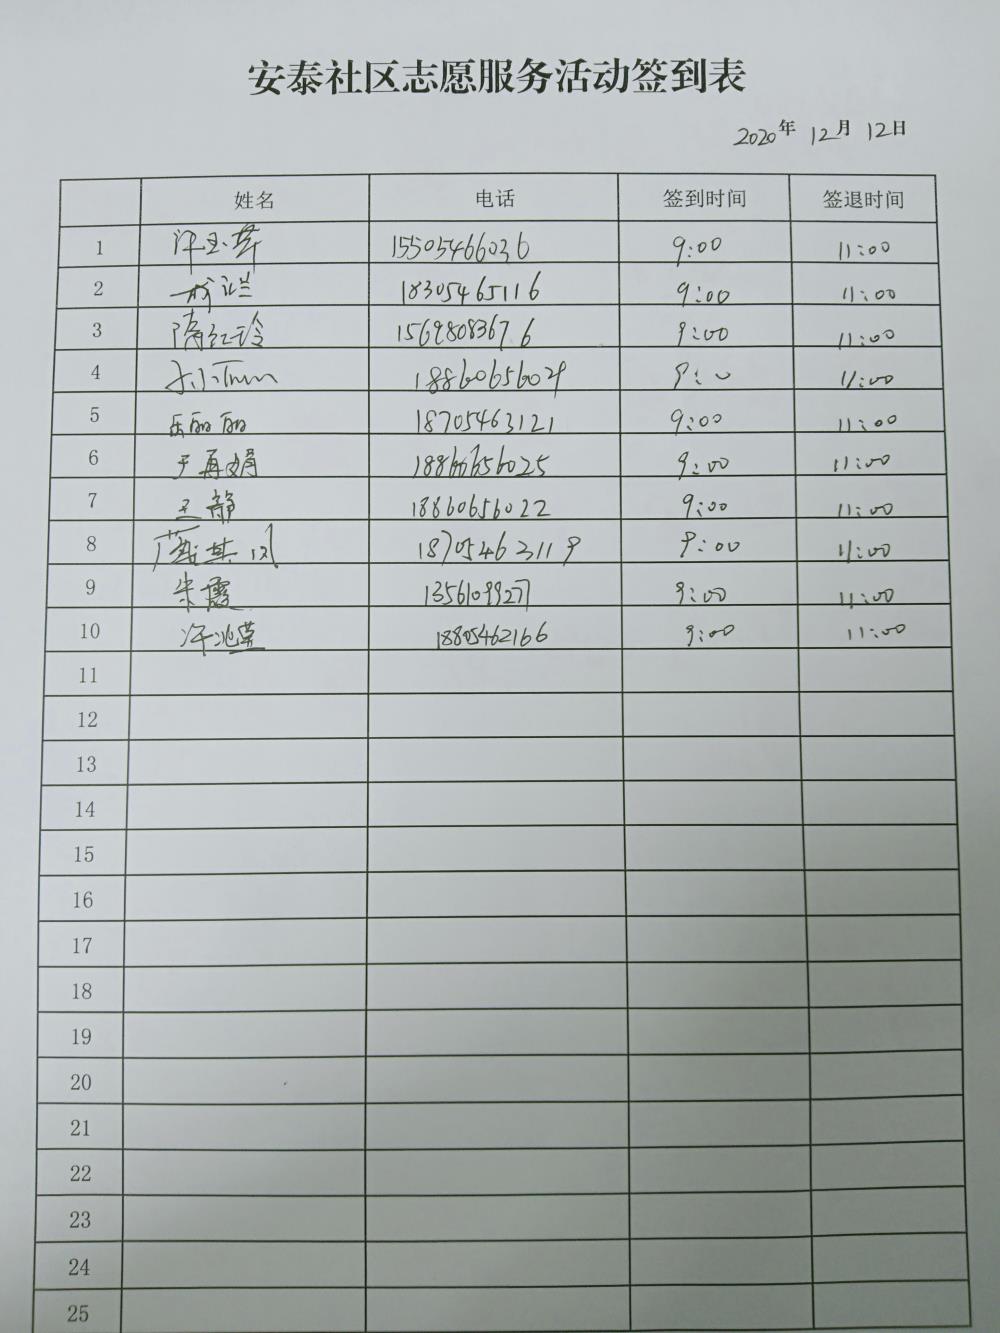 安泰社区志愿服务活动签到表
2020年 12月 12日
姓名 电话 签到时间 签退时间
1 许玉萍 15505466036 9:00 11:00
2 18305465116 9:00 11:00
3 隋红玲 15698083676 9:00 11:00
4 18860656029 9:00 11:00
5 岳丽丽 18705463121 9:00 11:00
6 于再娟 18860656025 9:00 11:00
7 王静 18860656022 9:00 11:00
8 18705463119 9:00 11:00
9 朱霞 13561099277 9:00 11:00
10 18805462166 9:00 11:00
11
12
13
14
15
16
17
18
19
20
21
22
23
24
25